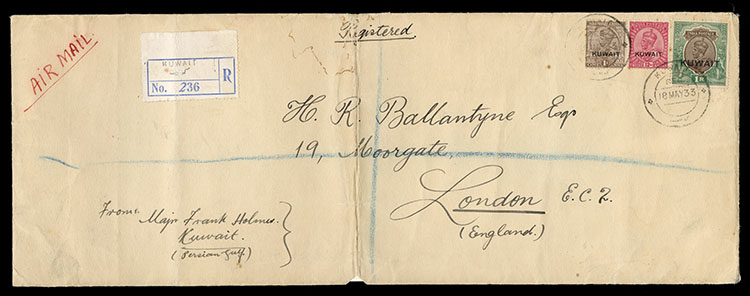 AIR MAIL
Registered
KUWAIT
No. 236 R
KUWAIT
KUWAIT
KUWAIT
1R
18 MAY 33
H. R. Ballantyne Esq
19, Moorgate,
London E.C.2.
(England.)
From: Majr Frank Holmes.
Kuwait.
(Persian Gulf)